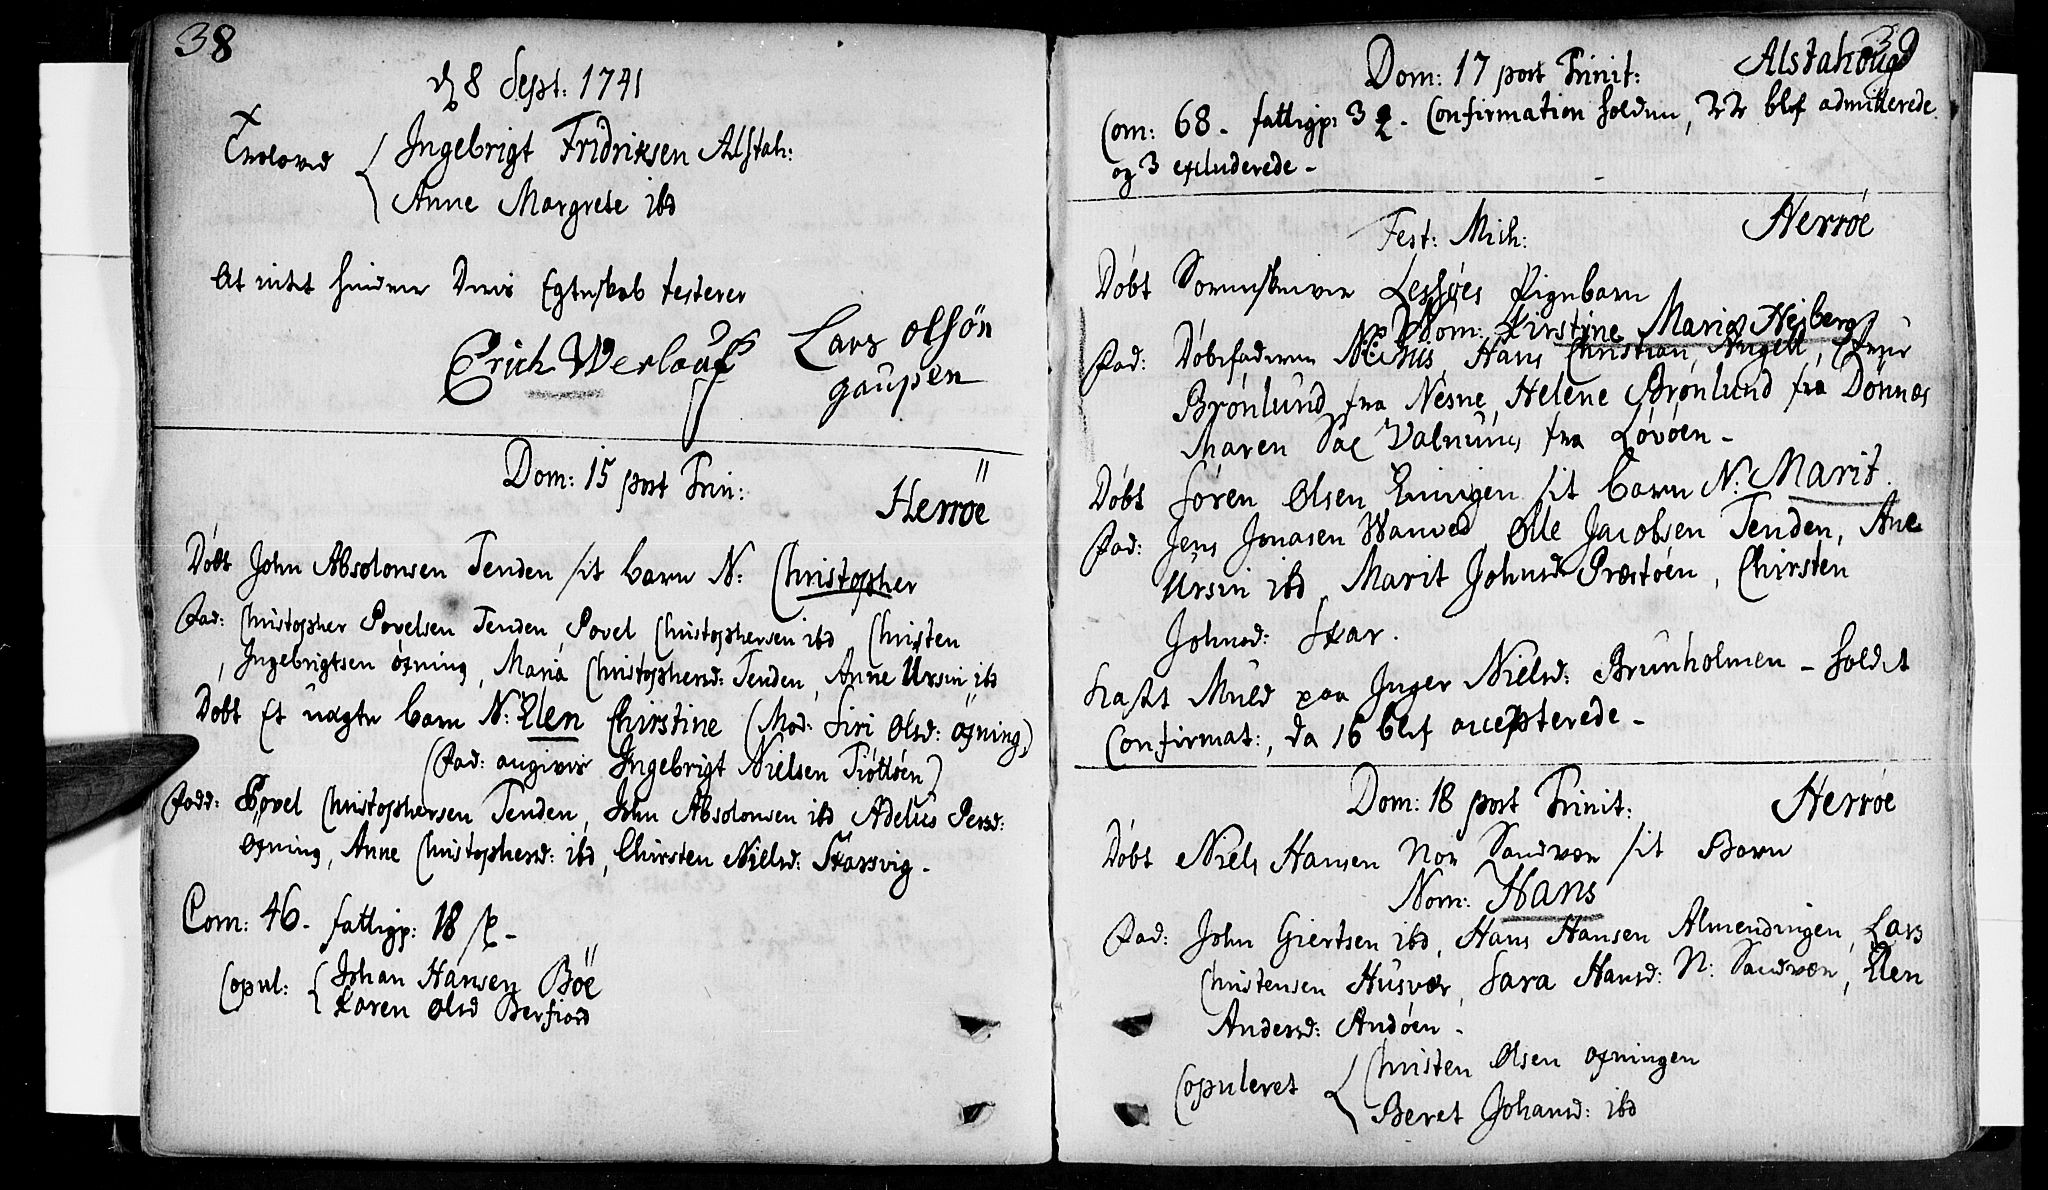 38
d 8 Sept: 1741
Troloved { Ingebrigt Fridriksen Alstah:
Anne Margrete ibd
At intet hindrer Deris Egteskab testerer
Erich Werlauff Lars olsön
gaupen
Dom: 15 post Trin:
Herröe
Döbt John Absolonsen Tenden sit barn N: Christopher
Fad: Christopher Povelsen Tenden, Povel Christophersen ibd, Christen
Ingebrigtsen öxning, Maria Christophersd: Tenden, Anne Ursin ibd
Döbt Et uægte barn N: Elen Chirstine (Mod: Siri Olsd: öxning,)
(Fad: angiver Ingebrigt Nielsen Tiöttöen)
Fadd: Povel Christophersen Tenden, John Absolonsen ibd Adelus Persd:
öxning, Anne Christophersd: ibd, Chirsten Nielsd: Skarsvig.
Com: 46. fattigp: 18 sk -
Copul: { Johan Hansen Böe
Karen Olsd Berfiord
39
Alstahoug
Dom: 17 post Trinit:
Com: 68. fattigp: 3 . Confirmation holden, 22 blef admitterede
og 3 excluderede -
Herröe
Fest: Mich:
Döbt Sorenskriver Lessöes Pigebarn
Nom: Kirstine Maria Hejberg
Fad: Döbefaderen Hans Christian Angell,
Brönlund fra Nesne, Helene Brönlund fra Dönnæs
Maren Sal Valnums fra Lövöen -
Döbt Sören Olsen sit barn N: Marit.
Fad: Jens Jonasen Wanved, Olle Jacobsen Tenden, Ane
Ursin ibd, Marit Johnsd: Præstöen, Chirsten
Johnsd: Skar.
Kast Muld paa Inger Nielsd: Brunholmen - holdet
Confirmat:, da 16 blef accepterede -
Dom: 18 post Trinit:
Herröe
Döbt Niels Hansen Nor Sandvær sit Barn
Nom: Hans
Fad: John Giertsen ibd, Hans Hansen Almendingen, Lars
Christensen Husvær, Sara Hansd: N: Sandvær, Elen
Andersd: Andöen -
Copuleret { Christen Olsen öxningen
Beret Johansd: ibd